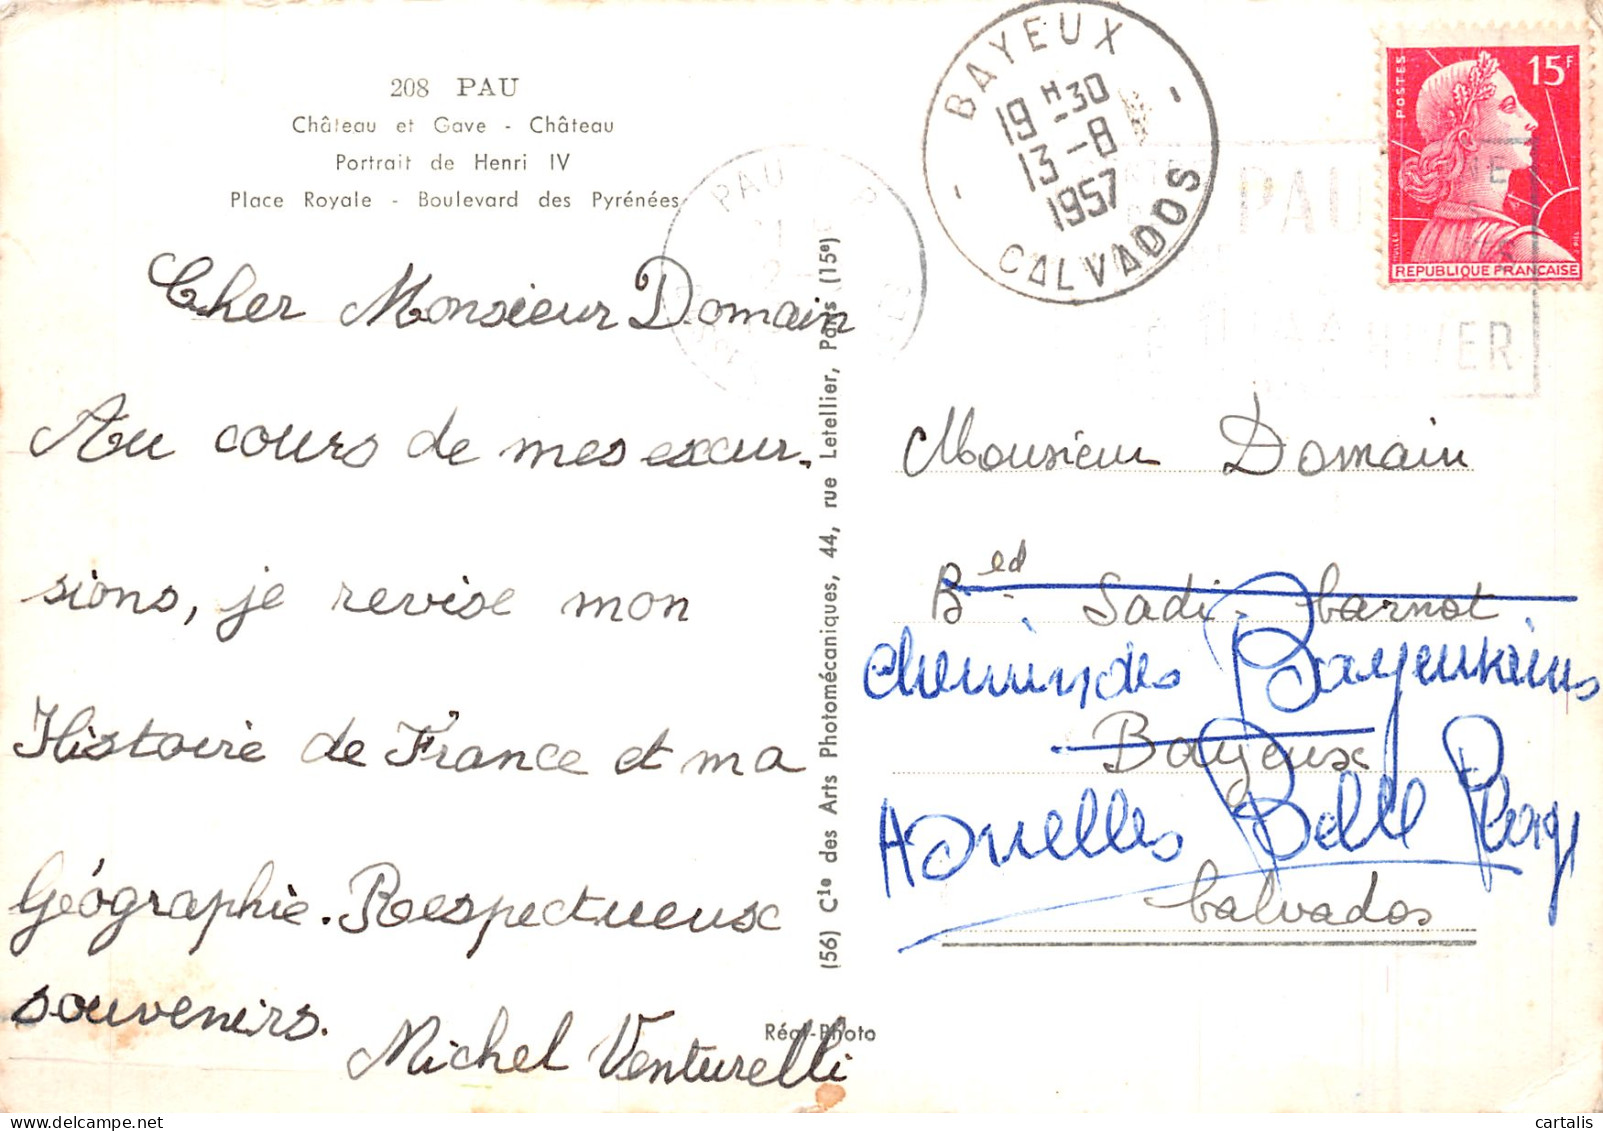 208 PAU
Château et Gave - Château
Portrait de Henri IV
Place Royale - Boulevard des Pyrénées
Cher Monsieur Domain
Au cours de mes excur-
sions, je revise mon
Histoire de France et ma
Géographie. Respectueux
souvenirs.
Michel Venturelli
(56) Cie des Arts Photomécaniques, 44, rue Letellier, Paris (15e)
Réal-Photo
BAYEUX
19H30
13-8
1957
CALVADOS
PAU
PAU
HIVER
POSTES
15F
REPUBLIQUE FRANCAISE
Monsieur Domain
Bled Sadi-Carnot
Chemin des
Bayeux
Asnelles Belle Plage
Calvados
cartalis